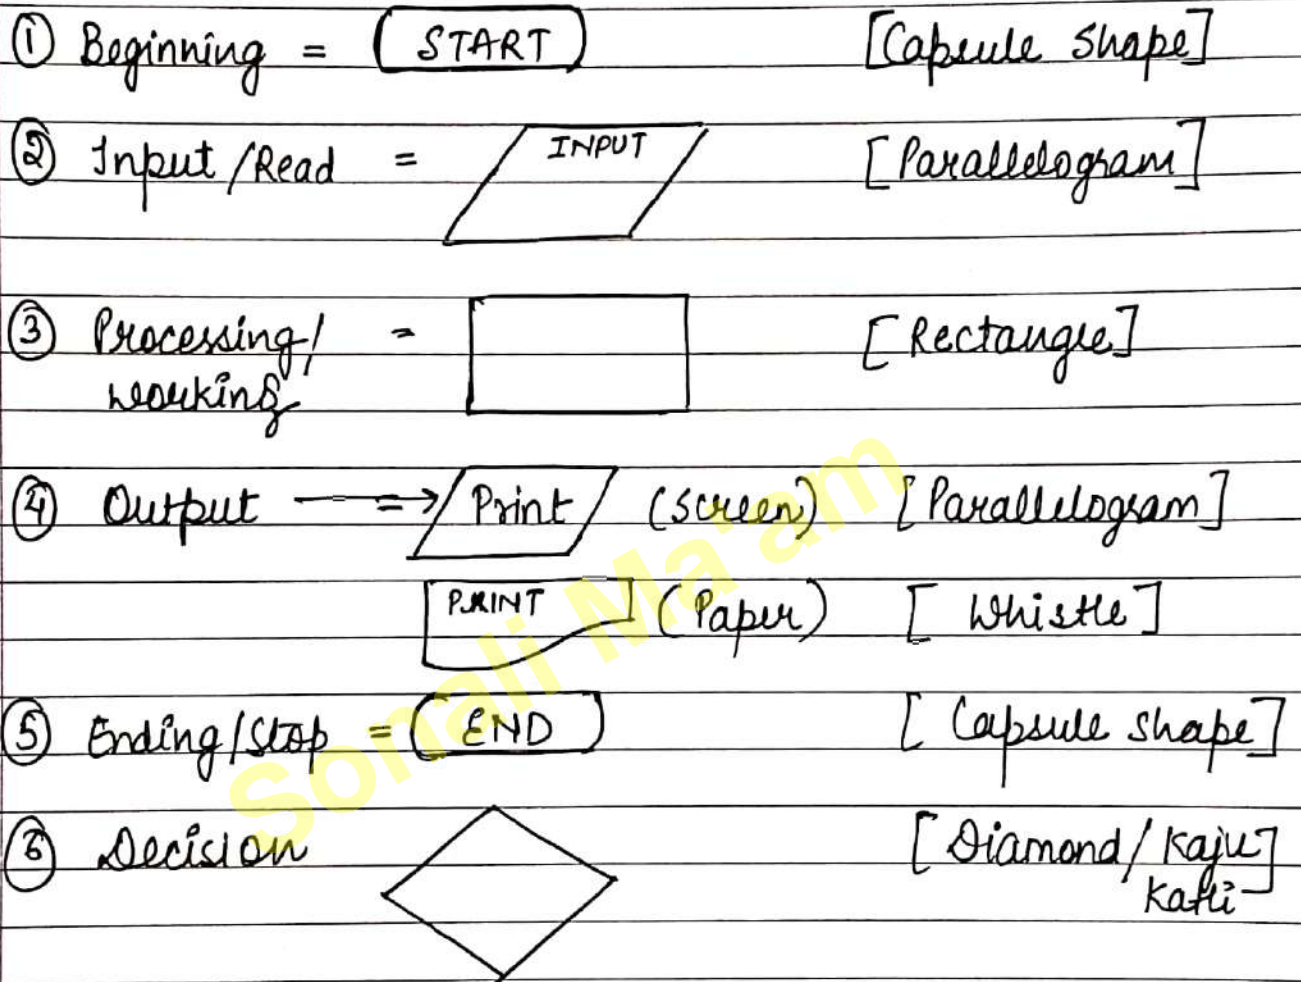 ① Beginning = START [Capsule Shape]
② Input/Read = INPUT [Parallelogram]
③ Processing/ = [Rectangle]
working
④ Output = Print (Screen) [Parallelogram]
PRINT (Paper) [Whistle]
⑤ Ending/Stop = END [Capsule shape]
⑥ Decision [Diamond/Kaju
Katli]
Sonali Ma'am